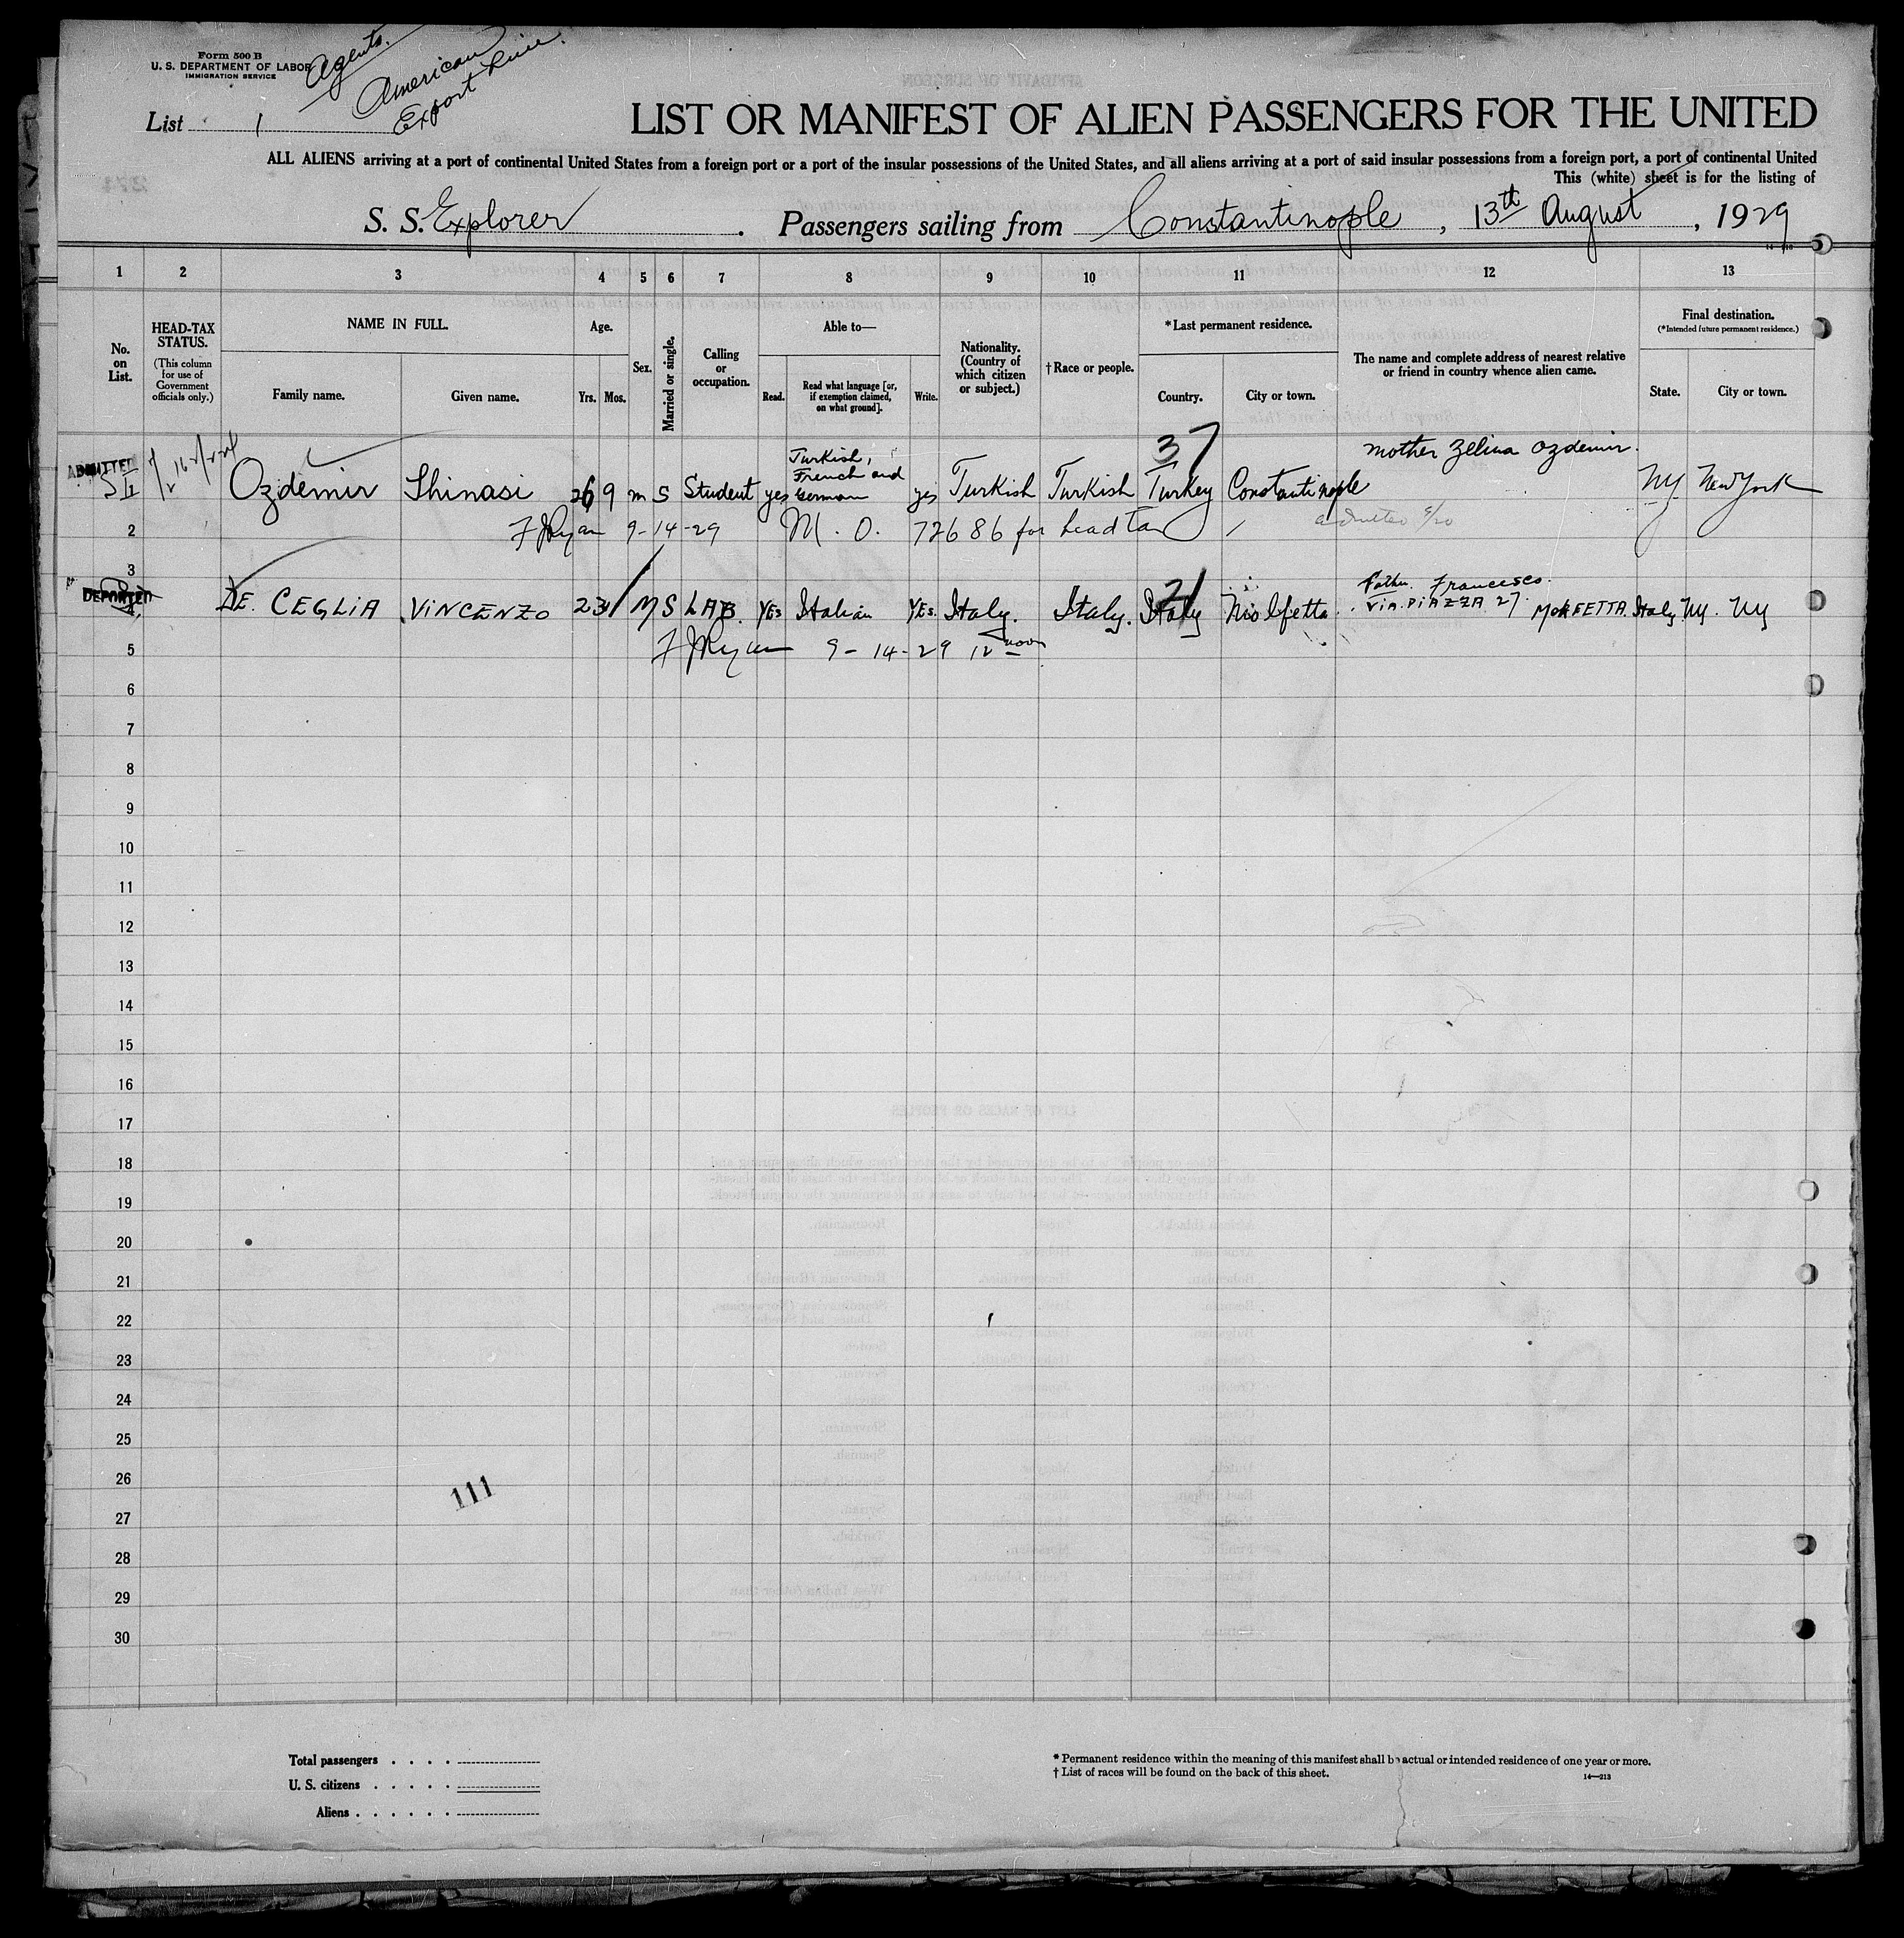 Form 500 B
U. S. DEPARTMENT OF LABOR
IMMIGRATION SERVICE
Agents.
American
Export Line.
List 1
LIST OR MANIFEST OF ALIEN PASSENGERS FOR THE UNITED
ALL ALIENS arriving at a port of continental United States from a foreign port or a port of the insular possessions of the United States, and all aliens arriving at a port of said insular possessions from a foreign port, a port of continental United
This (white) sheet is for the listing of
S. S. Explorer . Passengers sailing from Constantinople , 13th August , 1929
1 2 3 4 5 6 7 8 9 10 11 12 13
No. on List.
HEAD-TAX STATUS.
(This column for use of Government officials only.)
NAME IN FULL.
Family name. Given name.
Age.
Yrs. Mos.
Sex.
Married or single.
Calling or occupation.
Able to—
Read. Read what language [or, if exemption claimed, on what ground]. Write.
Nationality. (Country of which citizen or subject.)
† Race or people.
*Last permanent residence.
Country. City or town.
The name and complete address of nearest relative or friend in country whence alien came.
Final destination.
(*Intended future permanent residence.)
State. City or town.
37
ADMITTED Ozdemir Shinasi 26 9 m S Student yes Turkish, French and German yes Turkish Turkish Turkey Constantinople mother Zelina Ozdemir. NY New York
2 F J Ryan 9-14-29 M. O. 72686 for head tax admitted 9/20
3
DEPORTED DE CEGLIA VINCENZO 23 M S LAB. YES Italian YES. Italy. Italy. Italy Molfetta Father Francesco. VIA. PIAZZA 27. MOLFETTA. Italy NY. NY
21
5 F J Ryan 9-14-29 12 noon
6
7
8
9
10
11
12
13
14
15
16
17
18
19
20
21
22
23
24
25
26
111
27
28
29
30
Total passengers . . . .
U. S. citizens . . . . .
Aliens . . . . . .
* Permanent residence within the meaning of this manifest shall be actual or intended residence of one year or more.
† List of races will be found on the back of this sheet.
14—213